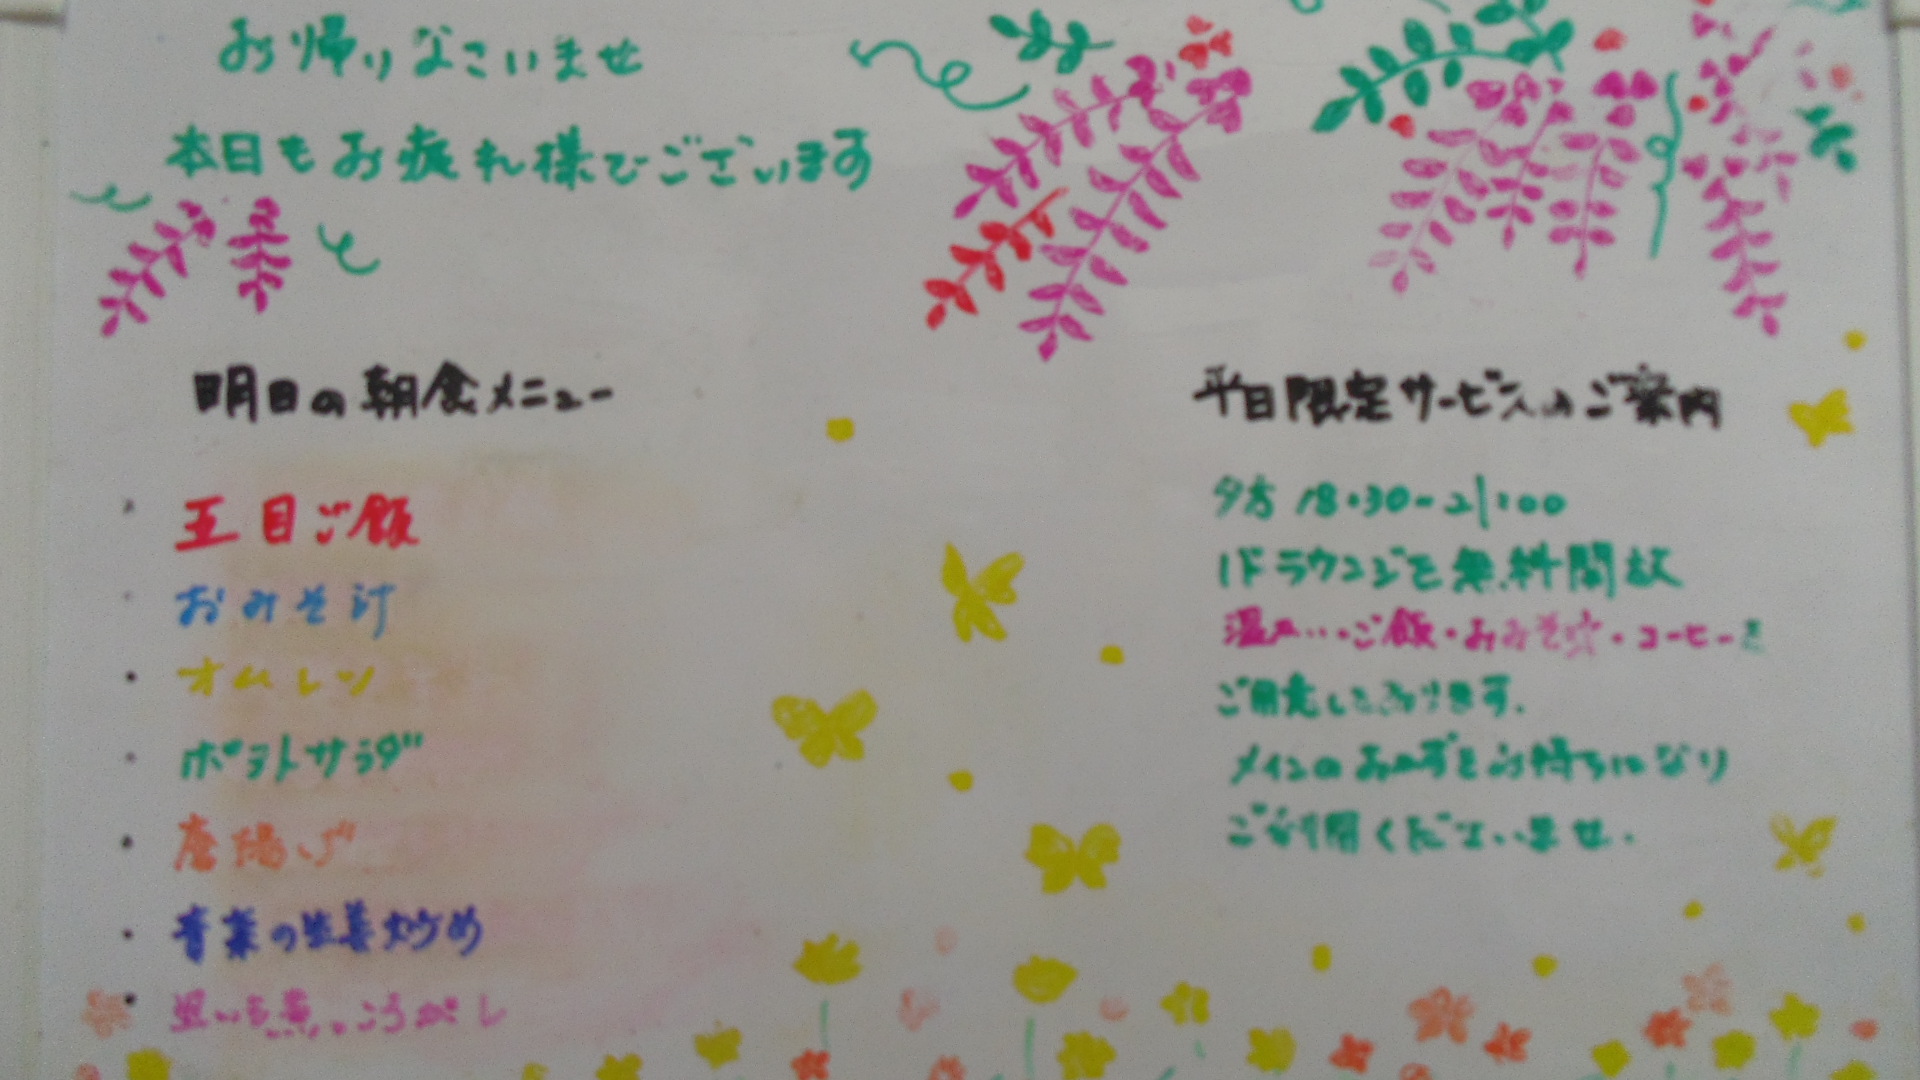 お帰りなさいませ
本日もお疲れ様でございます
明日の朝食メニュー
・五目ご飯
・おみそ汁
・オムレツ
・ポテトサラダ
・唐揚げ
・青菜の生姜炒め
・里いも煮っころがし
平日限定サービスのご案内
夕方 18:30-21:00
1Fラウンジを無料開放
温かい・ご飯・おみそ汁・コーヒーを
ご用意しております。
メインのおかずをお持ちになり
ご利用くださいませ。